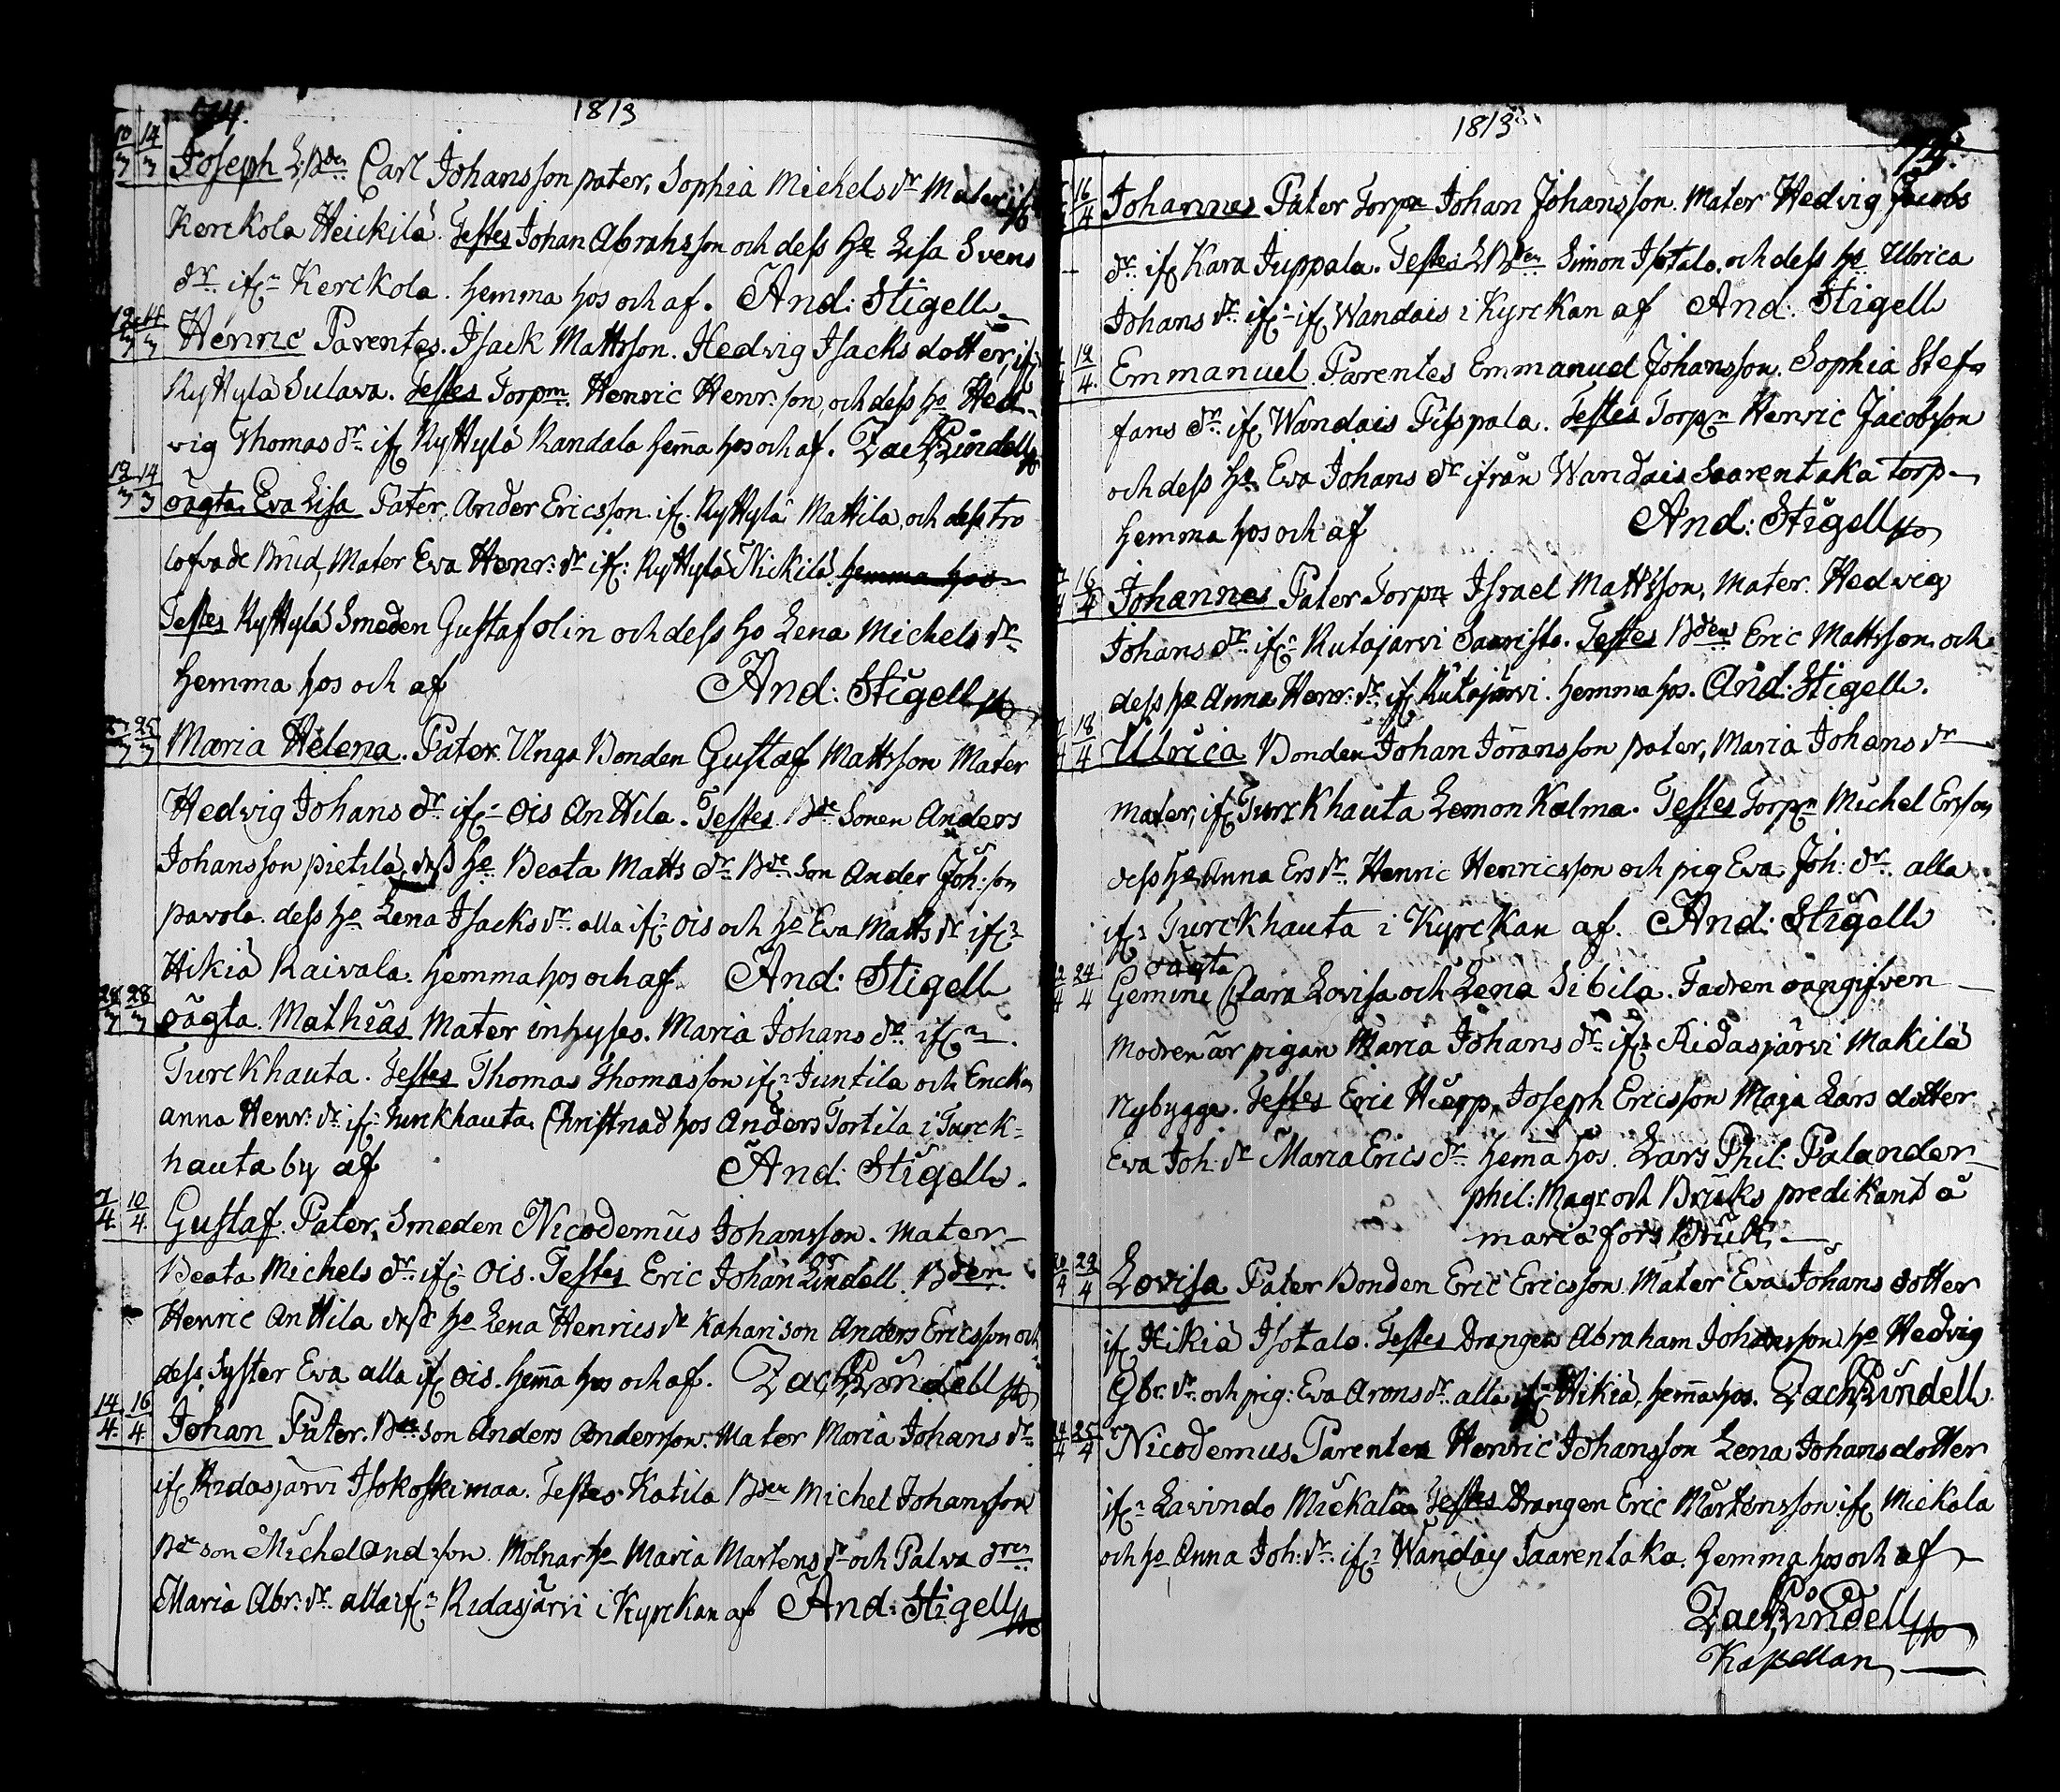 74. 1813
10/3 14/3 Joseph L:Bden Carl Johansson pater, Sophia Michels dr Mater if
Kerckola Heickilä. Testes Johan Abrahsson och dess ho Lisa Svens
dr. ifn Kerckola. hemma hos och af. And: Stigell
12/3 14/3 Henric Parentes. Isack Mattsson. Hedvig Isacks dotter, if
Ryttylä Sulava. Testes Torpm. Henric Henr: son, och dess ho Hed-
vig Thomas dr. if Ryttylä Kandala hemma hos och af. Zach Lindell
12/3 14/3 oägta. Eva Lisa Pater. Ander Ericsson. if. Ryttylä Mattila, och dess tro
lofvade Brud, Mater Eva Henr: dr if: Ryttylä Nickilä. hemma hos
Testes Ryttylä Smeden Gustaf Olin och dess ho Lena Michels dr
hemma hos och af And: Stigell
25/3 Maria Helena. Pater. Unga Bonden Gustaf Mattsson Mater
Hedvig Johans dr. ifn Ois Anttila. Testes Bde Sonen Anders
Johansson pietilä, dess ho. Beata Matts dr. Bde Son Ander Joh: son
pavola. dess ho Lena Isacks dr. alla ifn Ois och ho Eva Matts dr ifn
Hikiä Raivala. hemma hos och af And: Stigell
28/3 28/3 oägta. Mathias Mater inhyses. Maria Johans dr. ifn.
Turckhauta. Testes Thomas Thomasson ifn Juntila och Enckan
anna Henr: dr. if: Turckhauta. Christnad hos Anders Tortila i Turck-
hauta by af And: Stigell.
7/4 10/4 Gustaf. Pater. Smeden Nicodemus Johansson. Mater
Beata Michels dr. ifn Ois. Testes Eric Johan Lindell. Bden
Henric Anttila dess ho Lena Henrics dr Kaharison Anders Ericsson och
dess Syster Eva alla if Ois. hemma hos och af. Zach Lindell
14/4. 16/4. Johan Pater. Bde son Anders Andersson. Mater Maria Johans dr.
if Ridasjärvi Isokoskimaa. Testes Katila Bden Michel Johansson
Bde son Michel And: son. Molnar ho Maria Martens dr och Palwa dren
Maria Abr: dr. alla ifn Ridasjärvi i Kyrckan af And: Stigell
1813
16/4 Johannes Pater Torpn Johan Johansson. Mater Hedvig Jacobs
dr. if Kara Juppala. Testes L Bden Simon Isotalo. och dess ho Ulrica
Johans dr. ifn if Wandais i Kyrckan af And: Stigell
19/4. Emmanuel. Parentes Emmanuel Johansson. Sophia Stef-
fans dr. if Wandais Pispala. Testes Torpn Henric Jacobson
och dess ho Eva Johans dr ifrån Wandais Saarentaka torp
hemma hos och af And: Stigell
Johannes Pater Torpn Israel Mattsson, Mater. Hedvig
Johans dr. ifn Kutajärvi Saaristo. Testes Bden Eric Mattsson och
dess ho Anna Henr: dr. if Kutajärvi. hemma hos. And: Stigell.
18/4 Ulrica Bonden Johan Jöransson pater, Maria Johans dr
mater, if Turckhauta Lemon Kalma. Testes Torpn Michel Ersson
dess ho Anna Ers dr. Henric Henricsson och pig Eva Joh: dr. alla
ifn Turckhauta i Kyrckan af. And: Stigell
oägta
24/4 Gemini Clara Lovisa och Lena Sibila. Fadren oangifven
Modren är pigan Maria Johans dr. ifn Ridasjärvi Makilä
Nybygge. Testes Eric Hierp, Joseph Ericsson Maja Lars dotter
Eva Joh: dr Maria Erics dr. hemma hos. Lars Phil: Palander
phil: Magr och Bruks predikant å
mariæfors Bruk.
29/4 Lovisa Pater Bonden Eric Ericsson. Mater Eva Johans dotter
if Hikiä Isotalo. Testes Drangen Abraham Johansson ho Hedvig
Gbr: dr. och pig: Eva Arons dr. alla ifn Hikiä, hemma hos. Zach Lindell.
24/4 25/4 Nicodemus Parentes Henric Johansson Lena Johans dotter
ifn Lavindo Mickala Testes Drangen Eric Mårtensson. if Mickala
och ho Anna Joh: dr. ifn Wanday Saarentaka. hemma hos och af
Zach Lindell
Kapellan